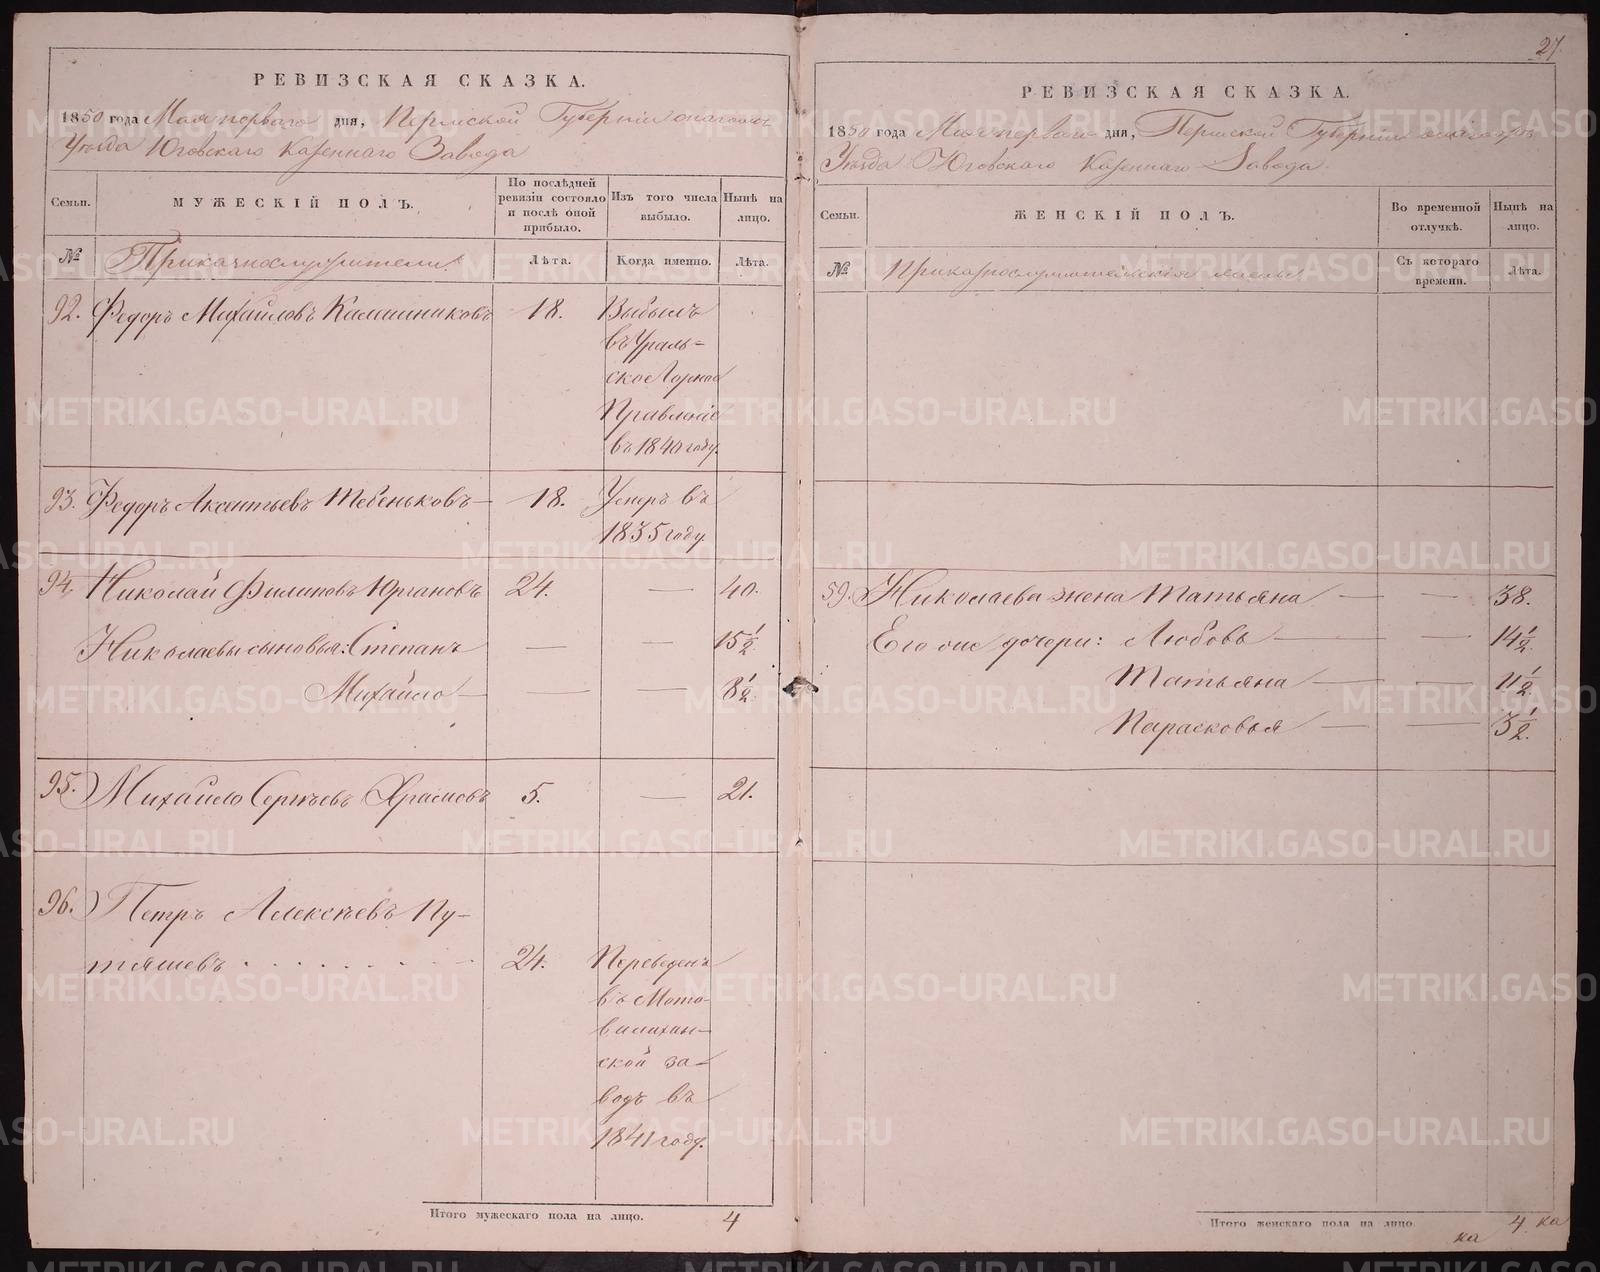 РЕВИЗСКАЯ СКАЗКА.
1850 года Мая перваго дня, Пермской Губерніи онагожъ
Уѣзда Юговскаго Казеннаго Завода
Семьи.
МУЖЕСКІЙ ПОЛЪ.
По послѣдней ревизіи состояло и послѣ оной прибыло.
Изъ того числа выбыло.
Нынѣ на лицо.
№
Приказнослужители.
Лѣта.
Когда именно.
Лѣта.
92. Федоръ Михайловъ Калашниковъ 18. Выбылъ
въ Ураль=
ское Горное
Правленіе
въ 1840 году.
93. Федоръ Аксентьевъ Тебеньковъ — 18. Умеръ въ
1835 году.
94. Николай Филиповъ Юргановъ 24. — 40.
Николаевы сыновья: Степанъ — — 15 1/2.
Михайло — — — 8 1/2.
95. Михайло Сергѣевъ Храмовъ 5. — 21.
96. Петръ Алексѣевъ Пу-
тяшевъ 24. Переведенъ
въ Мото-
вилихин-
ской за-
водъ въ
1841 году.
Итого мужескаго пола на лицо. 4
27.
РЕВИЗСКАЯ СКАЗКА.
1850 года Мая перваго дня, Пермской Губерніи онагожъ
Уѣзда Юговскаго Казеннаго Завода.
Семьи.
ЖЕНСКІЙ ПОЛЪ.
Во временной отлучкѣ.
Нынѣ на лицо.
№
Приказнослужительскія жены
Съ котораго времени.
Лѣта.
59. Николаева жена Татьяна — — 38.
Его же дочери: Любовь — — 14 1/2.
Татьяна — — 11 1/2.
Парасковья — — 3 1/2.
Итого женскаго пола на лицо 4
ка
ка
METRIKI.GASO-URAL.RU